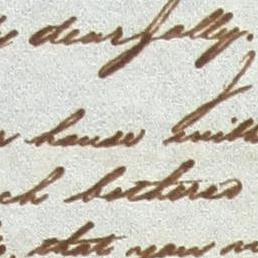 y dear Sally.
r house with
ch bothered
, that your